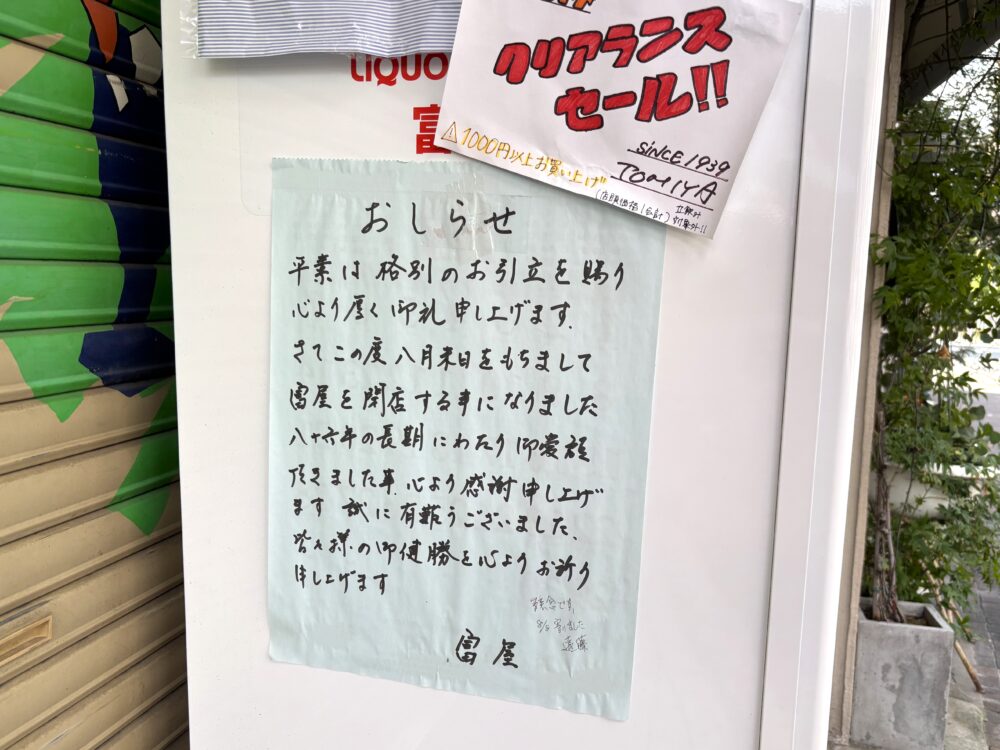 LIQUO
富
クリアランス
セール!!
⚠1000円以上お買い上げ
(店頭価格/合計)
立飲み
対象外!!
SINCE 1939
TOMIYA
おしらせ
平業は格別のお引立を賜り
心より厚く御礼申し上げます.
さてこの度八月末日をもちまして
富屋を閉店する事になりました
八十六年の長期にわたり御愛顧
頂きました事.心より感謝申し上げ
ます 誠に有難うございました、
皆々様の御健勝を心よりお祈り
申し上げます
富屋
残念です。
寄りました
遠藤